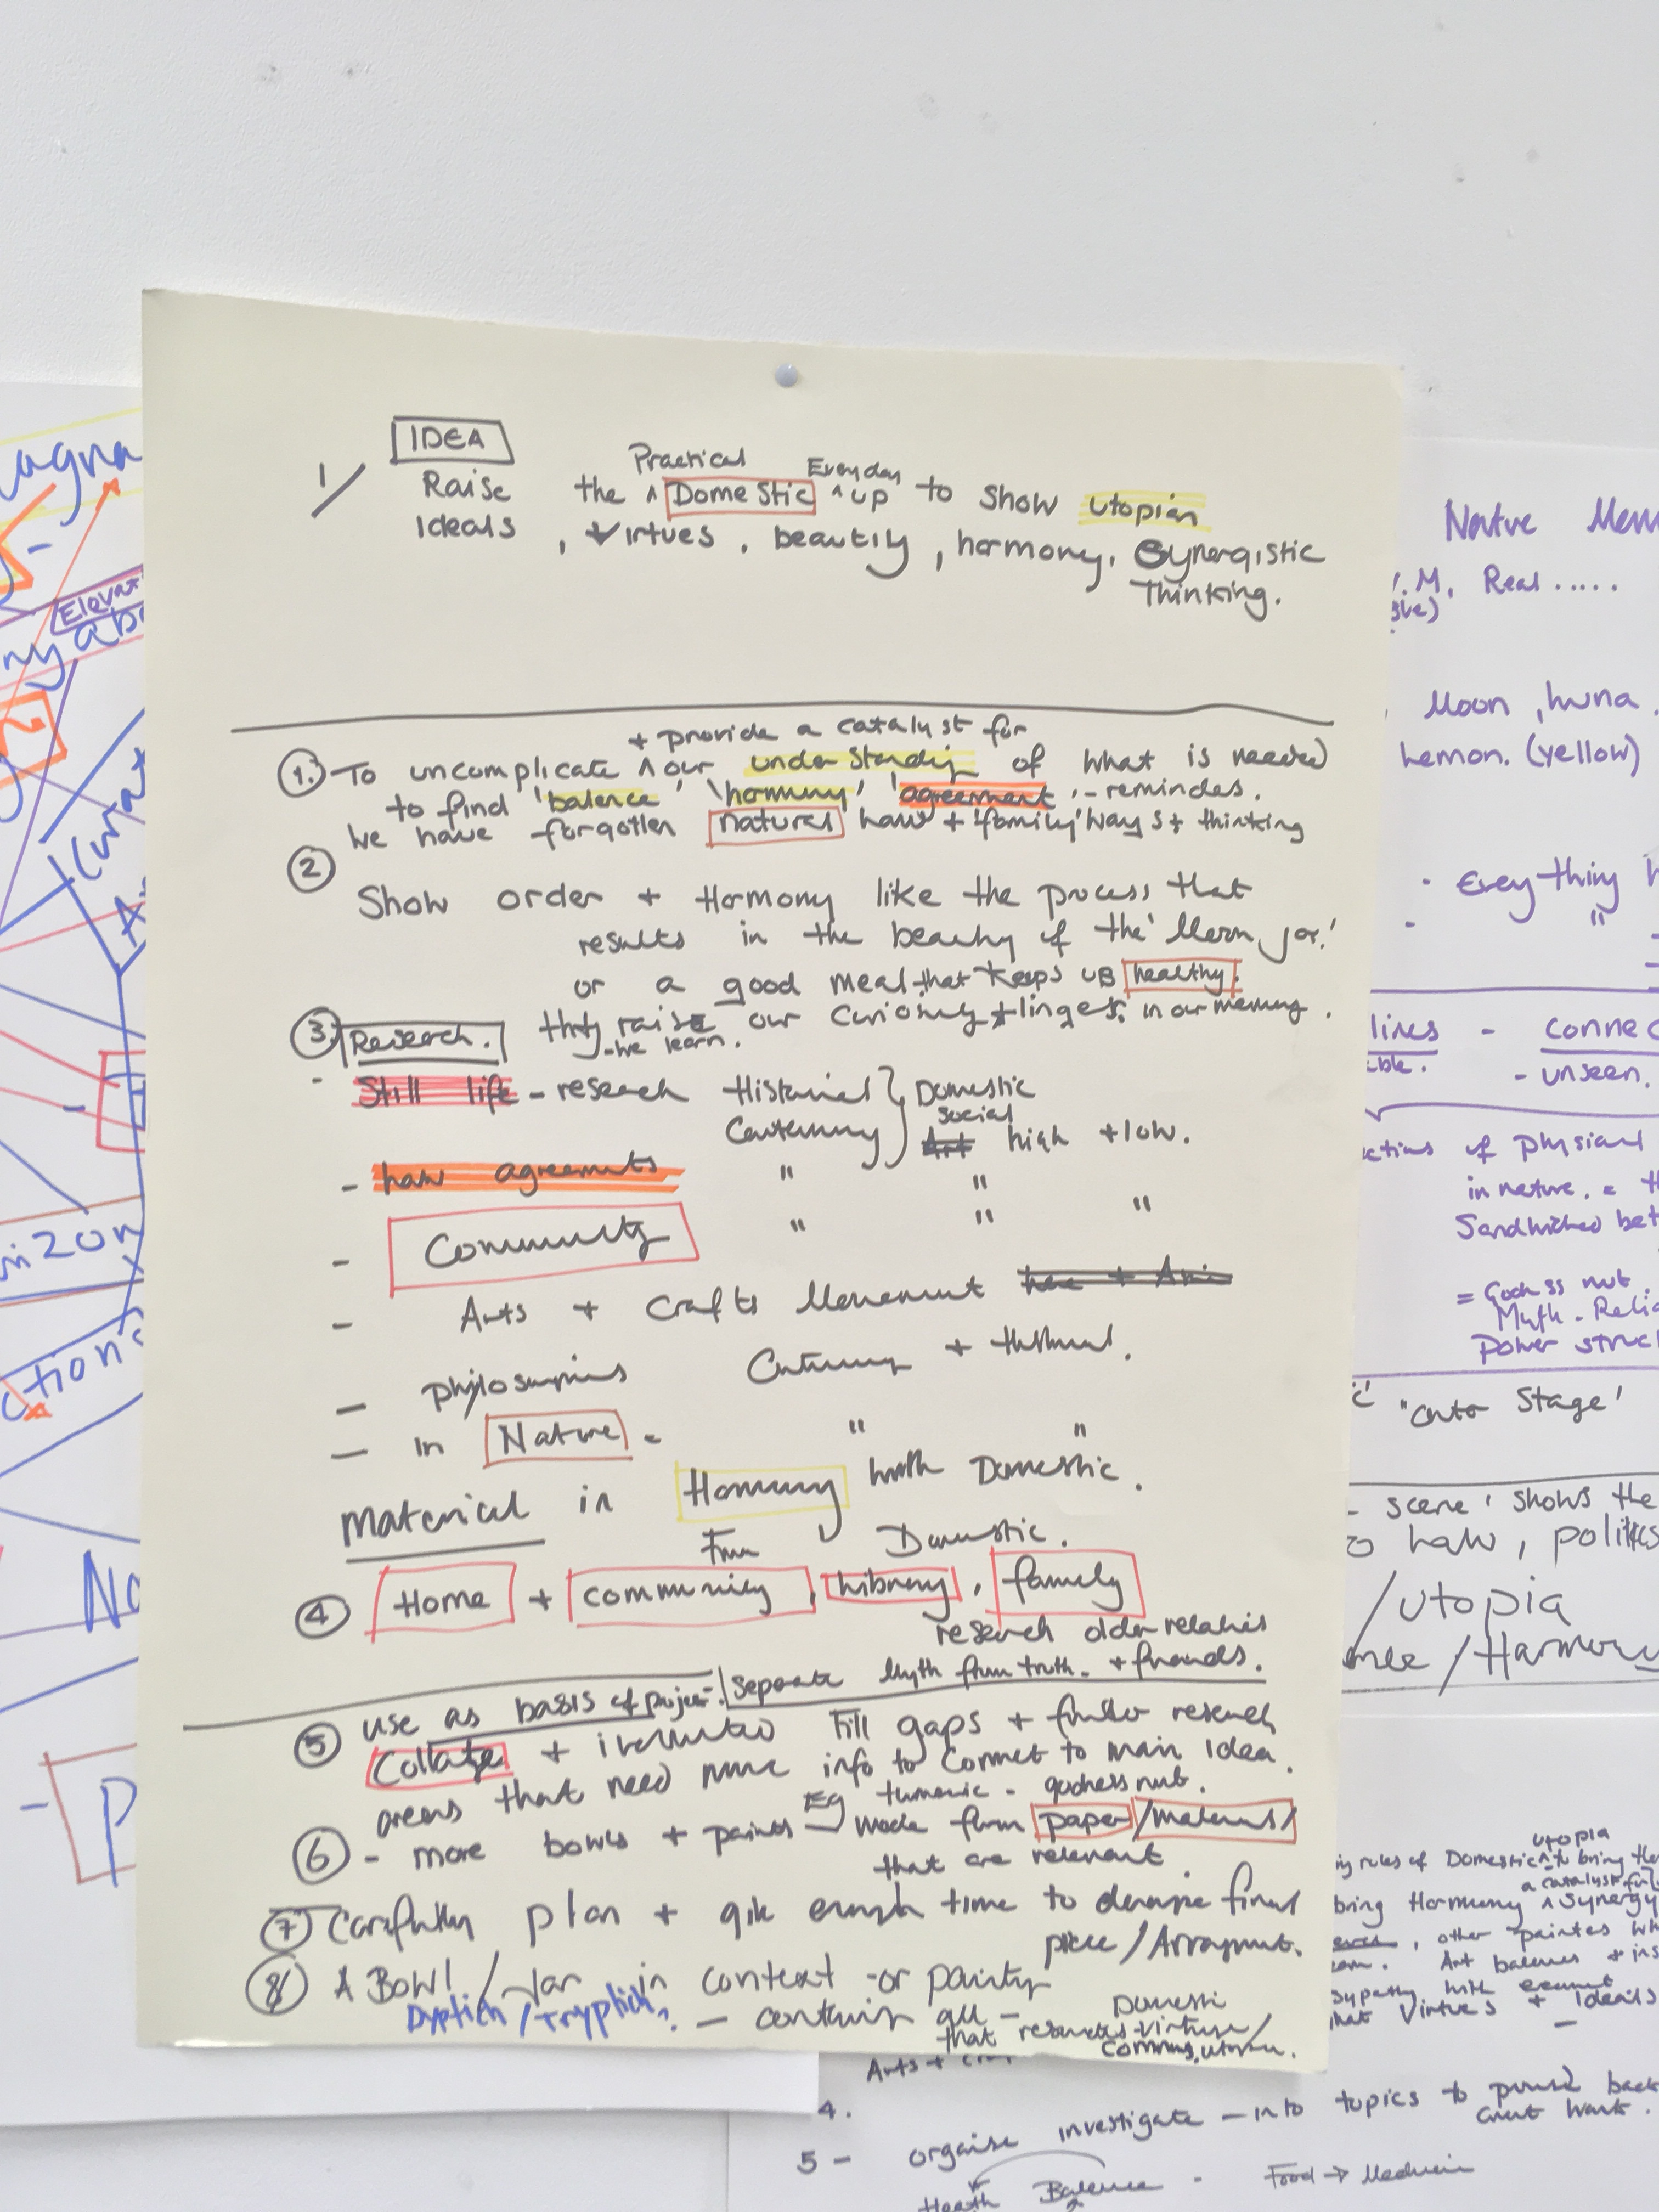 IDEA
1/ Raise the ^ Practical Domestic ^ Everyday up to show utopian
Ideals, virtues, beautily, harmony, Synergistic
Thinking.
+ provide a catalyst for
1. To uncomplicate ^ our understandig of what is needed
to find 'balance' 'harmony' 'agreement' - remindes.
We have forgotten natural Law + 'family' ways + thinking
2
Show order + Harmony like the process that
results in the beauty of the 'Moon jar.'
or a good meal that keeps us healthy.
they raise our curiosity + linges in our memory.
- we learn.
3. Research.
- Still life - research Historical Domestic
Contemporary social Art high + low.
- Law agreements " "
- Community " " "
- Arts + Crafts Movement
- philosophies Contemporary + Historical.
- in Nature - " "
Material in Harmony with Domestic.
From Domestic.
4 Home + community, Library, family
research older relatives
+ friends.
Seperate Myth from truth.
5 use as basis of project.
Collate + Fill gaps + further research
areas that need more info to Connect to main idea.
Eg tumeric - godness nut.
6 - more bowls + paints - made from paper/materials/
that are relevant.
7 Carefully plan + give enough time to final
piece/Arrangement.
8 A Bowl/Jar in context - or painting
Dyptich/Tryptich? - contains all - Domestic
that virtue/
utopia.
agna
Elevat
ny abo
izon
ction
No
P
Native Mem
V.M. Real .....
Moon, Luna.
Lemon. (yellow)
. Everything h
. "
lines - connec
- unseen.
of physical
in nature. = th
Sandwiched bet
= Godess nut.
Myth - Relig
Power struc
"Onto Stage'
scene' shows the
o Law, politics
/utopia
/Harmony
utopia
rules of Domestic ^ to bring the
a catalyst for
bring Harmony ^ Synergy
, other painters wh
Art balance + ins
sypathy with
that Virtues + Ideals
-
Arts +
4.
5 - orgaise investigate - into topics to back
Health Balance - Food → Medicine